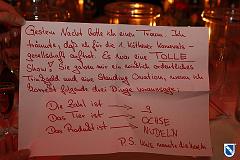 Gestern Nacht hatte ich einen Traum. Ich
träumte, daß ich für die 1. Kölner Karnevals-
gesellschaft auftrat. Es war eine TOLLE
Show! Sie gaben mir ein wirklich ordentliches
Trinkgeld und eine Standing Ovation, wenn ich
folgende drei Dinge voraussage:
Die Zahl ist → 9
Das Tier ist → OCHSE
Das Produkt ist → NUDELN
P.S.